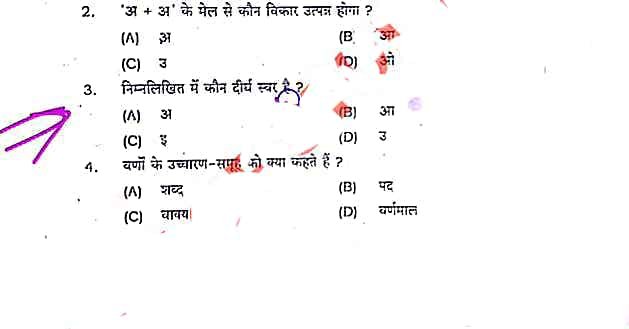 2. 'अ + अ' के मेल से कौन विकार उत्पन्न होगा ?
(A) अ (B) आ
(C) उ (D) ओ
3. निम्नलिखित में कौन दीर्घ स्वर है ?
(A) अ (B) आ
(C) इ (D) उ
4. वर्णों के उच्चारण-समूह को क्या कहते हैं ?
(A) शब्द (B) पद
(C) वाक्य (D) वर्णमाल